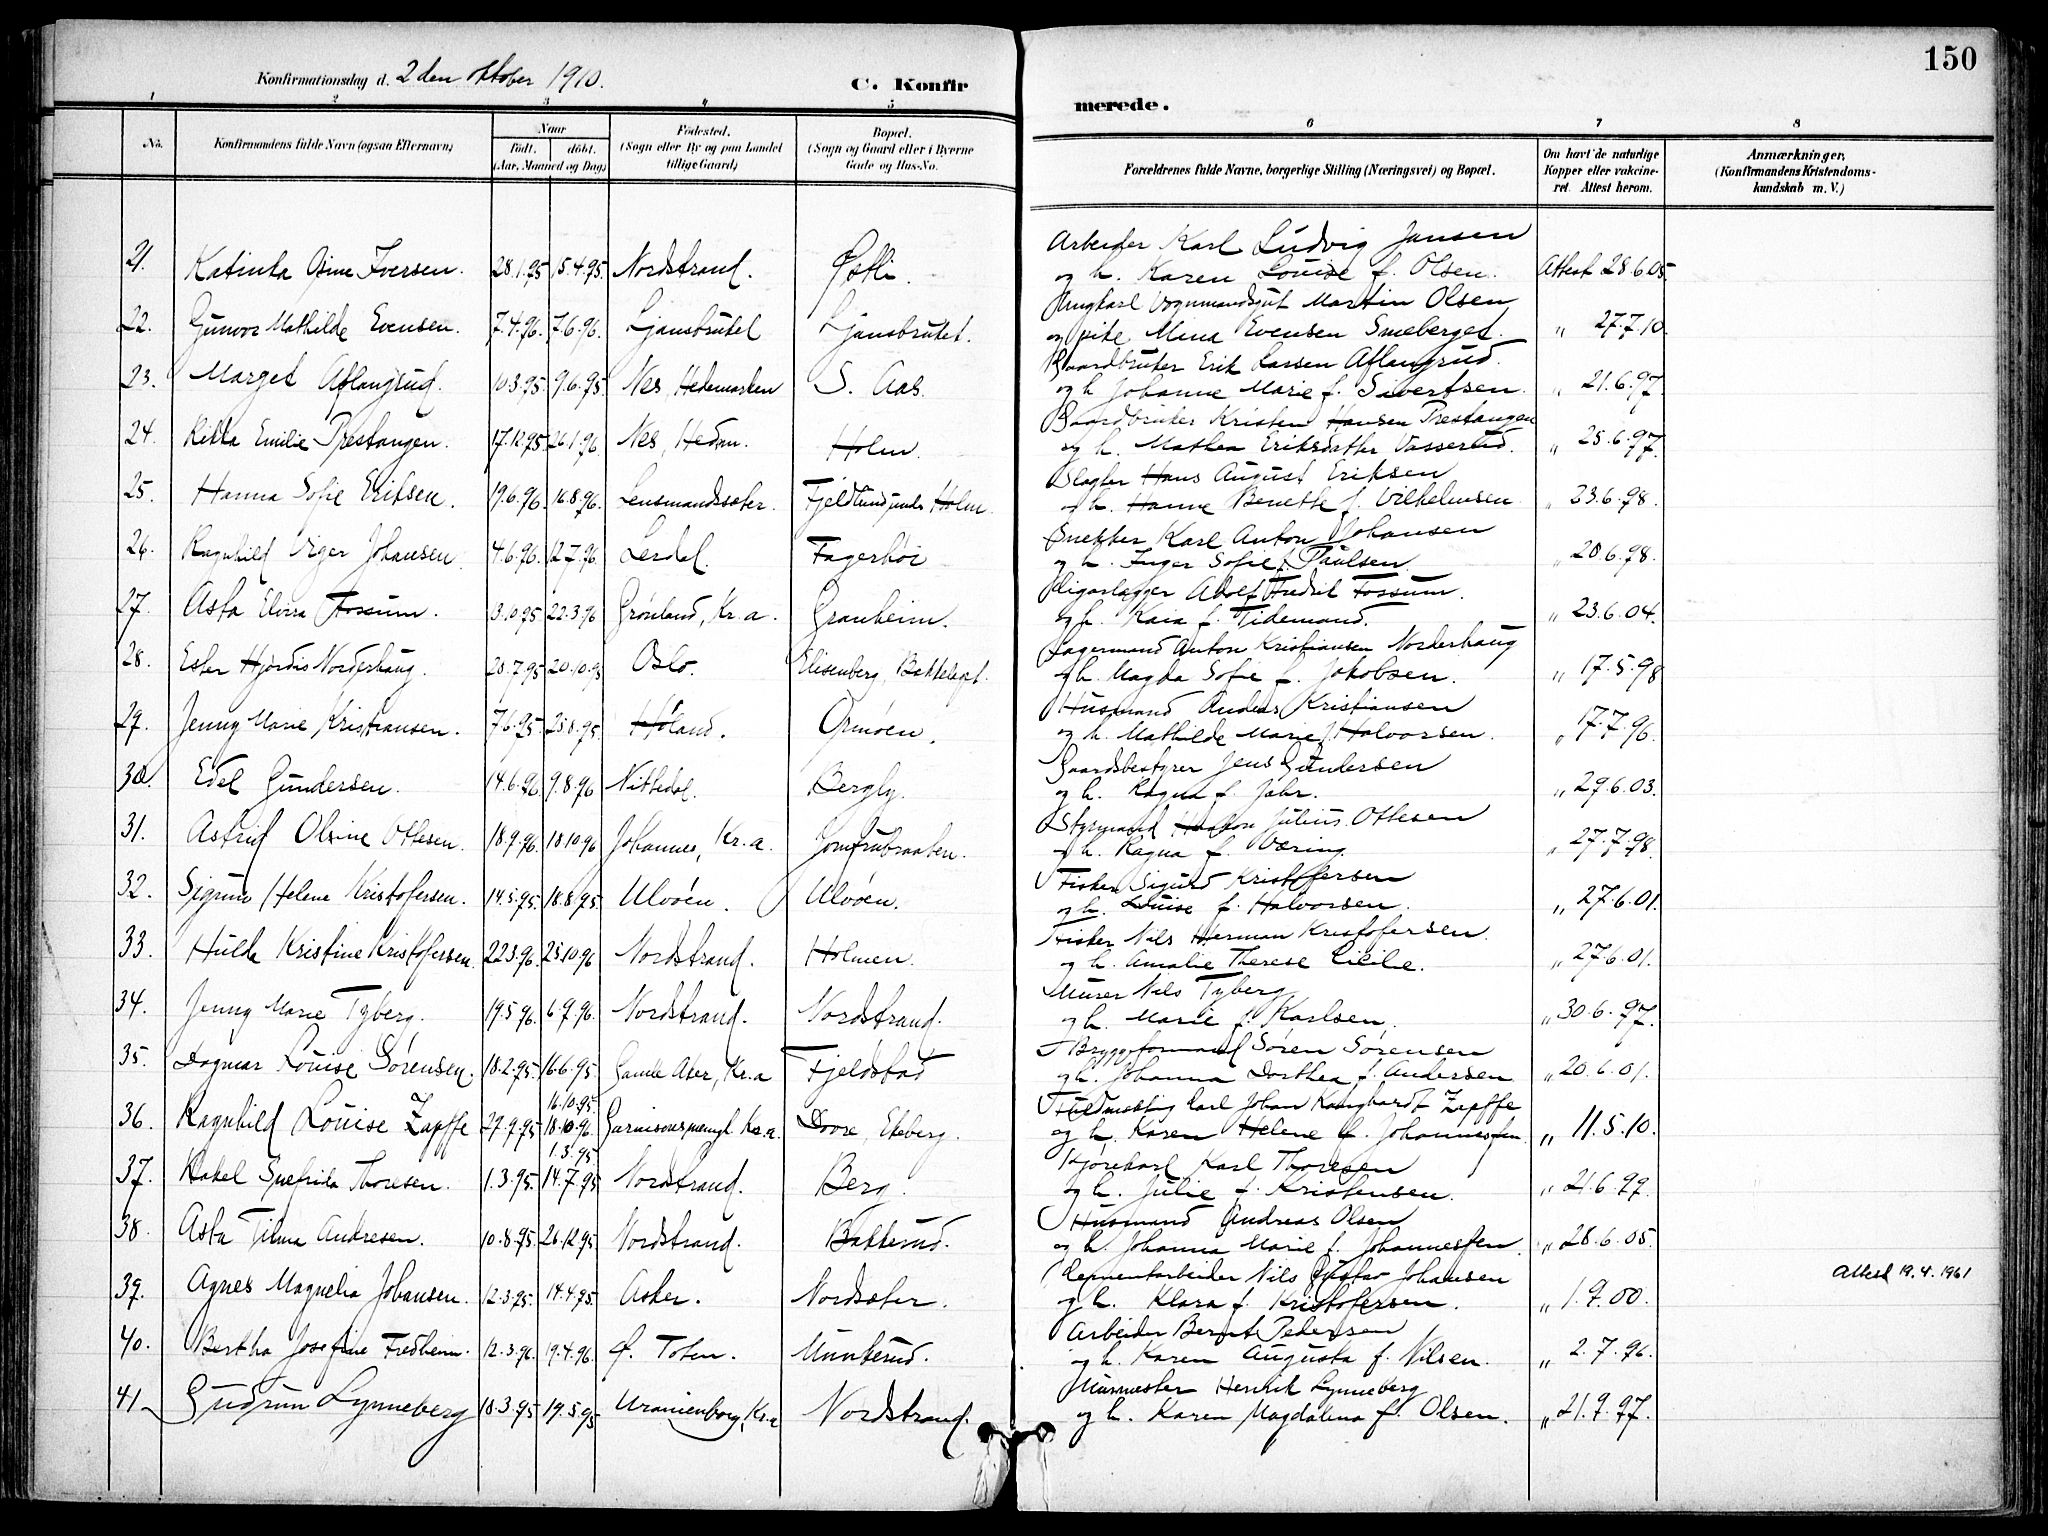 150
Konfirmationsdag d. 2 den oktober 1910.
C. Konfir
merede.
1 2 3 4 5 6 7 8
No. Konfirmandens fulde Navn (ogsaa Efternavn) Naar Födt. döbt. (Aar, Maaned og Dag) Födested. (Sogn eller By og paa Landet tillige Gaard) Bopæl. (Sogn og Gaard eller i Byerne Gade og Hus-No. Forældrenes fulde Navne, borgerlige Stilling (Næringsvei) og Bopæl. Om havt de naturlige Kopper eller vakcineret. Attest herom. Anmærkninger, (Konfirmandens Kristendomskundskab m. V.)
Arbeider Karl Ludvig Jansen
21. Katinka Iversen. 28.1.95 15.4.95. Nordstrand. Østli. og h. Karen Louise f. Olsen. Attest 28.6.05.
Ungkarl Vognmandsgut Martin Olsen
22. Gunvor Mathilde Evensen. 7.4.96. 7.6.96. Ljansbruket Ljansbruket. og pike Mina Evensen Smeberget. " 27.7.10.
Gaardbruker Erik Larsen Aflangrud.
23. Marget Aflangrud. 10.3.95. 9.6.95. Nes, Hedemarken S. Aas. og h. Johanne Marie f. Sivertsen. " 21.6.97.
Gaardbruker Kristen Hansen Prestangen
24. Rikka Emilie Prestangen. 17.12.95 26.1.96. Nes, Hedm. Holm. og h. Mathea Eriksdatter Vasserud. " 25.6.97.
Slagter Hans August Eriksen
25. Hanna Sofie Eriksen. 19.6.96. 16.8.96. Lensmandssæter. Fjeldlund, under Holm. og h. Hanne Benette f. Vilhelmsen. " 23.6.98.
Snekker Karl Anton Johansen
26. Ragnhild Viger Johansen. 4.6.96. 12.7.96. Lerdal. Fagerhøi og h. Inger Sofie f. Paulsen. " 20.6.98.
Adolf Fredrik Fossum.
27. Asta Elvira Fossum. 3.10.95 22.3.96 Grønland, Kr.a. Granheim. og h. Kaia f. Tidemand. " 23.6.04.
Lagermand Anton Kristiansen Norderhaug
28. Ester Hjørdis Norderhaug. 20.7.95 20.10.95 Oslo. Elisenberg, Bekkelaget. og h. Magda Sofie f. Jakobsen. " 17.5.98
Husmand Anders Kristiansen
29. Jenny Marie Kristiansen. 7.6.95. 25.8.95. Høland. Ormøen. og h. Mathilde Marie f. Halvorsen. " 17.7.96.
Gaardsbestyrer Jens Gundersen
30. Edel Gundersen. 14.6.96 9.8.96 Nittedal. Bergly. og h. Ragna f. Jahr. " 29.6.03.
Styrmand Haakon Julius Ottesen
31. Astrid Olsine Ottesen. 18.9.96. 18.10.96 Johannes, Kr.a. Jomfrubraaten. og h. Ragna f. Væring. " 27.7.98.
Fisker Sigurd Kristofersen
32. Sigrun Helene Kristofersen. 14.5.95. 18.8.95. Ulvøen. Ulvøen. og h. Louise f. Halvorsen. " 27.6.01.
Fisker Nils Herman Kristofersen.
33. Hulda Kristine Kristofersen. 22.3.96. 25.10.96 Nordstrand. Holmen. og h. Amalie Therese Cicilie. " 27.6.01.
Murer Nils Tyberg
34. Jenny Marie Tyberg. 19.5.96. 6.7.96. Nordstrand. Nordstrand. og h. Marie f. Karlsen. " 30.6.97.
Bryggeformand Søren Sørensen
35. Dagmar Louise Sørensen. 18.2.95. 16.6.95 Gamle Aker, Kr.a Fjeldstad og h. Johanna Dorthea f. Andersen " 20.6.01.
16.10.95. Fuldmægtig Carl Johan Zapffe
36. Ragnhild Louise Zapffe 27.9.95 18.10.96. Garnisonsmenigh. Kr.a. Ekeberg. og h. Karen Helene f. Johannessen. " 11.5.10.
1.3.95 Kjørekarl Karl Thoresen
37. Hakel Snefrida Thoresen. 1.3.95. 14.7.95 Nordstrand. Berg. og h. Julie f. Kristensen. " 21.6.99.
Husmand Andreas Olsen
38. Asta Tilma Andresen. 10.8.95. 26.12.95 Nordstrand. Bakkerud. og h. Johanna Marie f. Johannessen. " 28.6.05.
Cementarbeider Nils Gustav Johansen
39. Agnes Magnelia Johansen. 12.3.95. 14.4.95. Asker. Nordsæter. og h. Klara f. Kristofersen. " 1.9.00. Attest 19.4.1961
Arbeider Bernt Pedersen
40. Bertha Josefine Fredheim. 12.3.96. 19.4.96. Ø. Toten. Munkerud. og h. Karen Augusta f. Nilsen. " 2.7.96.
Murmester Henrik Lynneberg
41. Gudrun Lynneberg 10.3.95 19.5.95 Uranienborg, Kr.a Nordstrand. og h. Karen Magdalena f. Olsen. " 21.9.97.